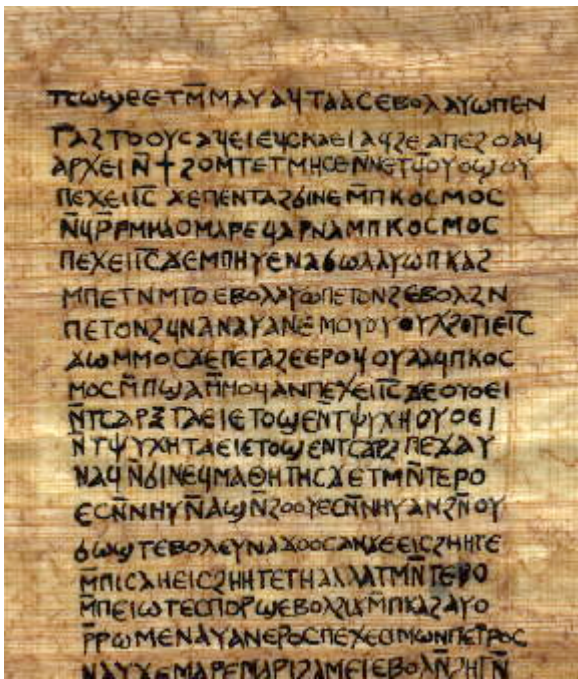 ⲧⲥⲱϣⲉⲉⲧⲙ̄ⲙⲁⲩⲁϥⲧⲁⲁⲥⲉⲃⲟⲗⲁⲩⲱⲡⲉⲛ
ⲧⲁϩⲧⲟⲟⲩⲥⲁϥⲉⲓⲉϥⲥⲕⲁⲉⲓⲁϥϩⲉⲁⲡⲉϩⲟⲁϥ
ⲁⲣⲭⲉⲓⲛ̄ϯϩⲟⲙⲧⲉⲧⲙⲏⲥⲉⲛ̄ⲛⲉⲧϥⲟⲩⲟϣⲟⲩ
ⲡⲉϫⲉⲓ̅ⲥ̅ϫⲉⲡⲉⲛⲧⲁϩϭⲓⲛⲉⲙ̄ⲡⲕⲟⲥⲙⲟⲥ
ⲛ̄ϥⲣ̄ⲣⲙⲙⲁⲟⲙⲁⲣⲉϥⲁⲣⲛⲁⲙⲡⲕⲟⲥⲙⲟⲥ
ⲡⲉϫⲉⲓ̅ⲥ̅ϫⲉⲙⲡⲏⲩⲉⲛⲁϭⲱⲗⲁⲩⲱⲡⲕⲁϩ
ⲙⲡⲉⲧⲛⲙⲧⲟⲉⲃⲟⲗⲁⲩⲱⲡⲉⲧⲟⲛϩⲉⲃⲟⲗϩⲛ
ⲡⲉⲧⲟⲛϩϥⲛⲁⲛⲁⲩⲁⲛⲉⲙⲟⲩⲟⲩⲭϩⲟⲧⲓⲉⲓ̅ⲥ̅
ϫⲱⲙⲙⲟⲥϫⲉⲡⲉⲧⲁϩⲉⲉⲣⲟϥⲟⲩⲁⲁϥⲡⲕⲟⲥ
ⲙⲟⲥⲙ̄ⲡϣⲁⲙ̄ⲙⲟϥⲁⲛⲡⲉϫⲉⲓ̅ⲥ̅ϫⲉⲟⲩⲟⲉⲓ
ⲛ̄ⲧⲥⲁⲣⲝⲧⲁⲉⲓⲉⲧⲟϣⲉⲛⲧⲯⲩⲭⲏⲟⲩⲟⲉⲓ
ⲛⲧⲯⲩⲭⲏⲧⲁⲉⲓⲉⲧⲟϣⲉⲛⲧⲥⲁⲣⲝⲡⲉϫⲁⲩ
ⲛⲁϥⲛ̄ϭⲓⲛⲉϥⲙⲁⲑⲏⲧⲏⲥϫⲉⲧⲙⲛ̄ⲧⲉⲣⲟ
ⲉⲥⲛ̄ⲛⲏⲩⲛ̄ⲁϣⲛ̄ϩⲟⲟⲩⲉⲥⲛ̄ⲛⲏⲩⲁⲛϩⲛ̄ⲟⲩ
ϭⲱϣⲧⲉⲃⲟⲗⲉⲩⲛⲁϫⲟⲟⲥⲁⲛϫⲉⲉⲓⲥϩⲏⲏⲧⲉ
ⲙ̄ⲡⲓⲥⲁⲏⲉⲓⲥϩⲏⲏⲧⲉⲧⲏⲁⲗⲗⲁⲧⲙⲛ̄ⲧⲉⲣⲟ
ⲙ̄ⲡⲉⲓⲱⲧⲉⲥⲡⲟⲣϣⲉⲃⲟⲗϩⲓϫⲙ̄ⲡⲕⲁϩⲁⲩⲱ
ⲣ̄ⲣⲱⲙⲉⲛⲁⲩⲁⲛⲉⲣⲟⲥⲡⲉϫⲉⲥⲓⲙⲱⲛⲡⲉⲧⲣⲟⲥ
ⲛⲁⲩϫⲉⲙⲁⲣⲉⲙⲁⲣⲓϩⲁⲙⲉⲓⲉⲃⲟⲗⲛ̄ϩⲏⲧⲛ̄